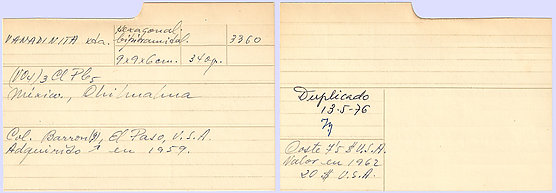 VANADINITA xda.
hexagonal,
bipiramidal.
9x9x6cm. 340gr.
3360
(VO4)3 Cl Pb5
México, Chihuahua
Col. Barron, El Paso, U.S.A.
Adquirido en 1959.
Duplicado
13-5-76
Coste 75 $ U.S.A.
Valor en 1962
20 $ U.S.A.